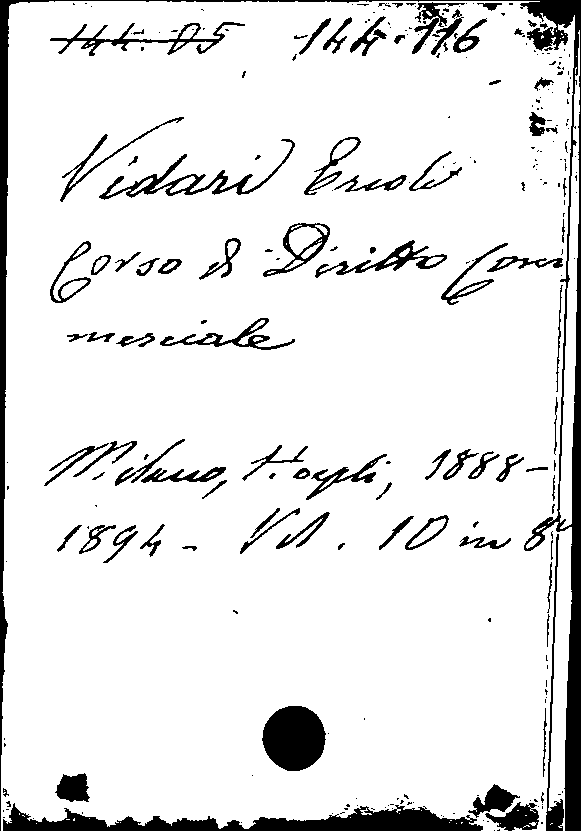 144.D5 144.116
Vidari Ercole
Corso di Diritto Com
merciale
Milano, Hoepli, 1888-
1894 - Vol. 10 in 8°